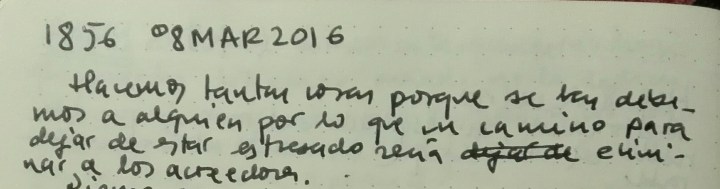 1856 08 MAR 2016
Hacemos tantas cosas porque se las debe-
mos a alguien por lo que un camino para
dejar de estar estresado sería dejar de elimi-
nar a los acreedores.